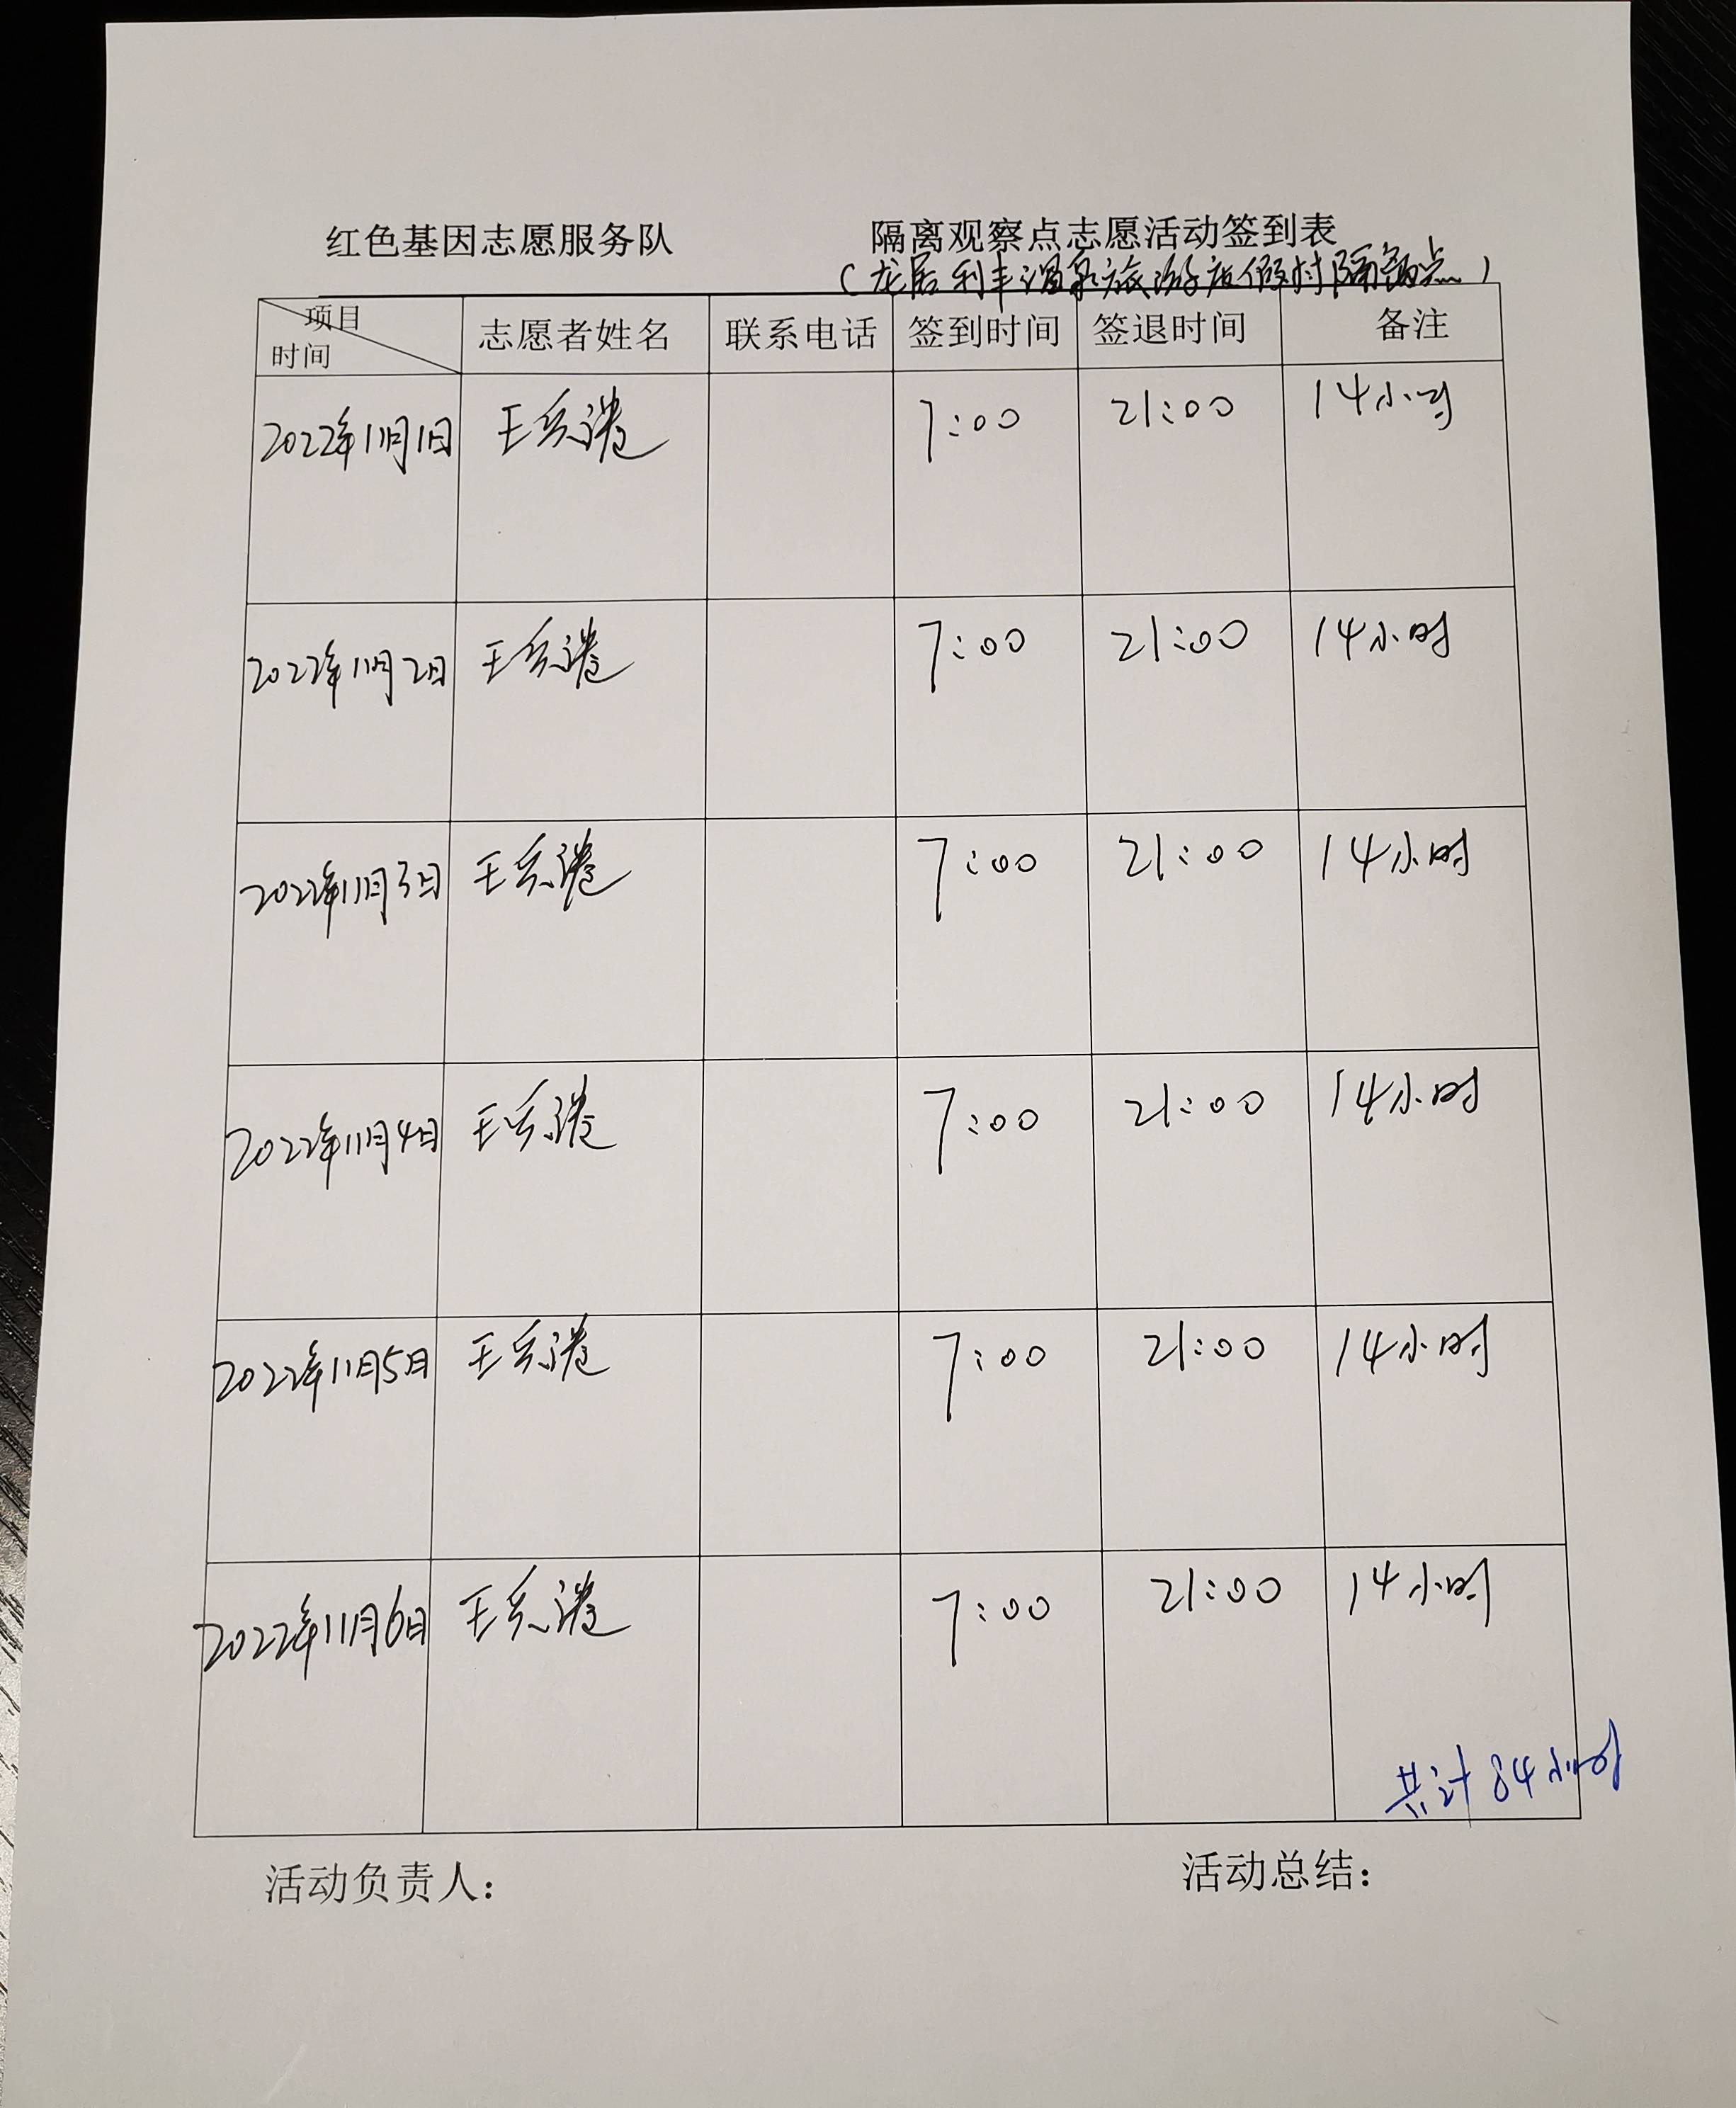 红色基因志愿服务队 隔离观察点志愿活动签到表
(龙居利丰温泉旅游度假村隔离点)
项目
时间 志愿者姓名 联系电话 签到时间 签退时间 备注
2022年11月1日 王 7:00 21:00 14小时
2022年11月2日 王 7:00 21:00 14小时
2022年11月3日 王 7:00 21:00 14小时
2022年11月4日 王 7:00 21:00 14小时
2022年11月5日 王 7:00 21:00 14小时
2022年11月6日 王 7:00 21:00 14小时
共计84小时
活动负责人: 活动总结: